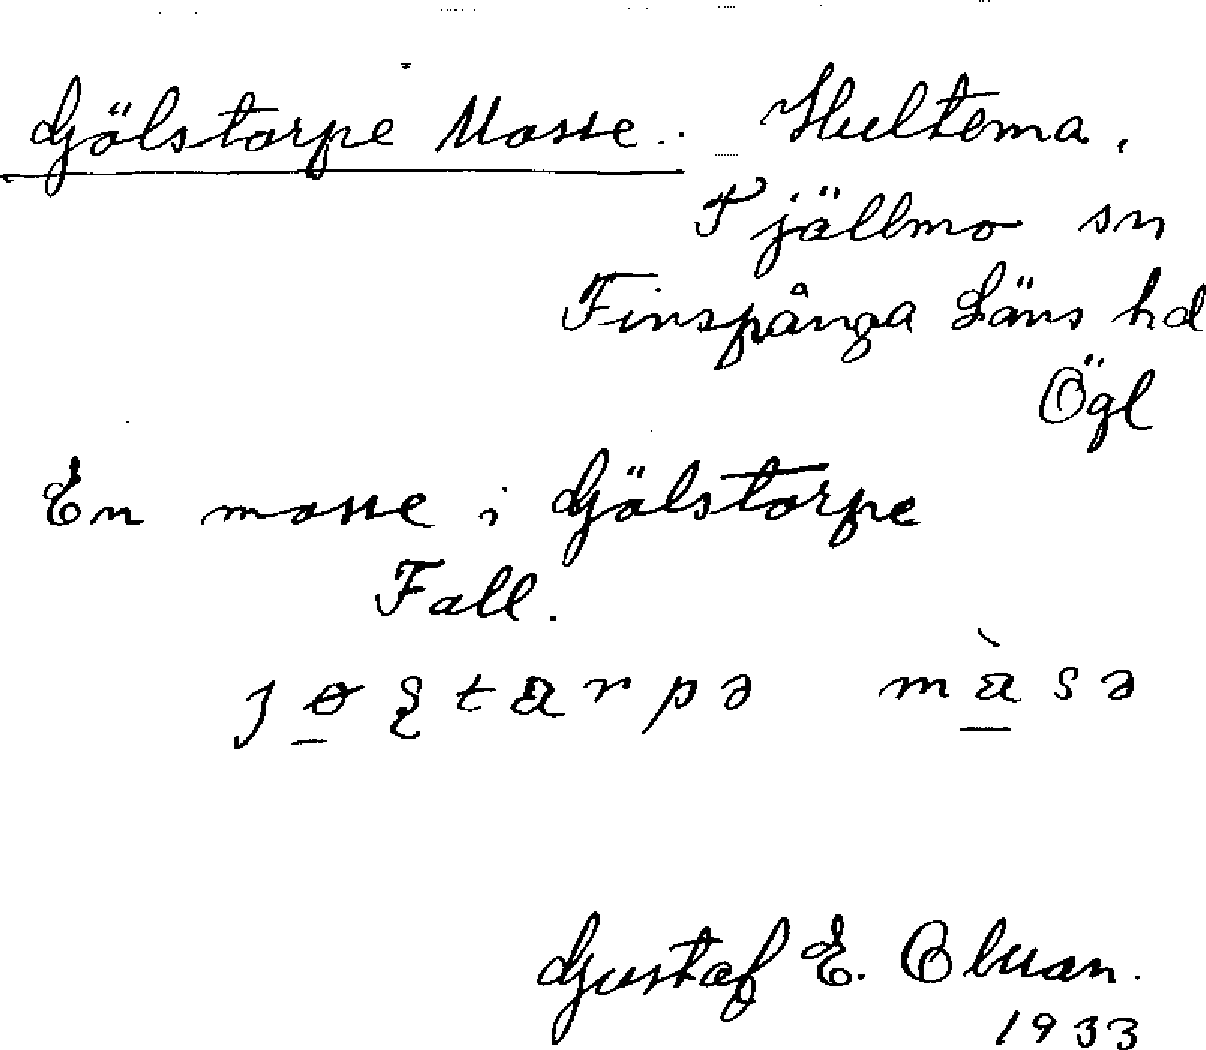 Gölstorpe Mosse. Hultema,
Tjällmo sn
Finspånga Läns hd
Ögl
En mosse i Gölstorpe
Fall.
Gustaf E.
1933